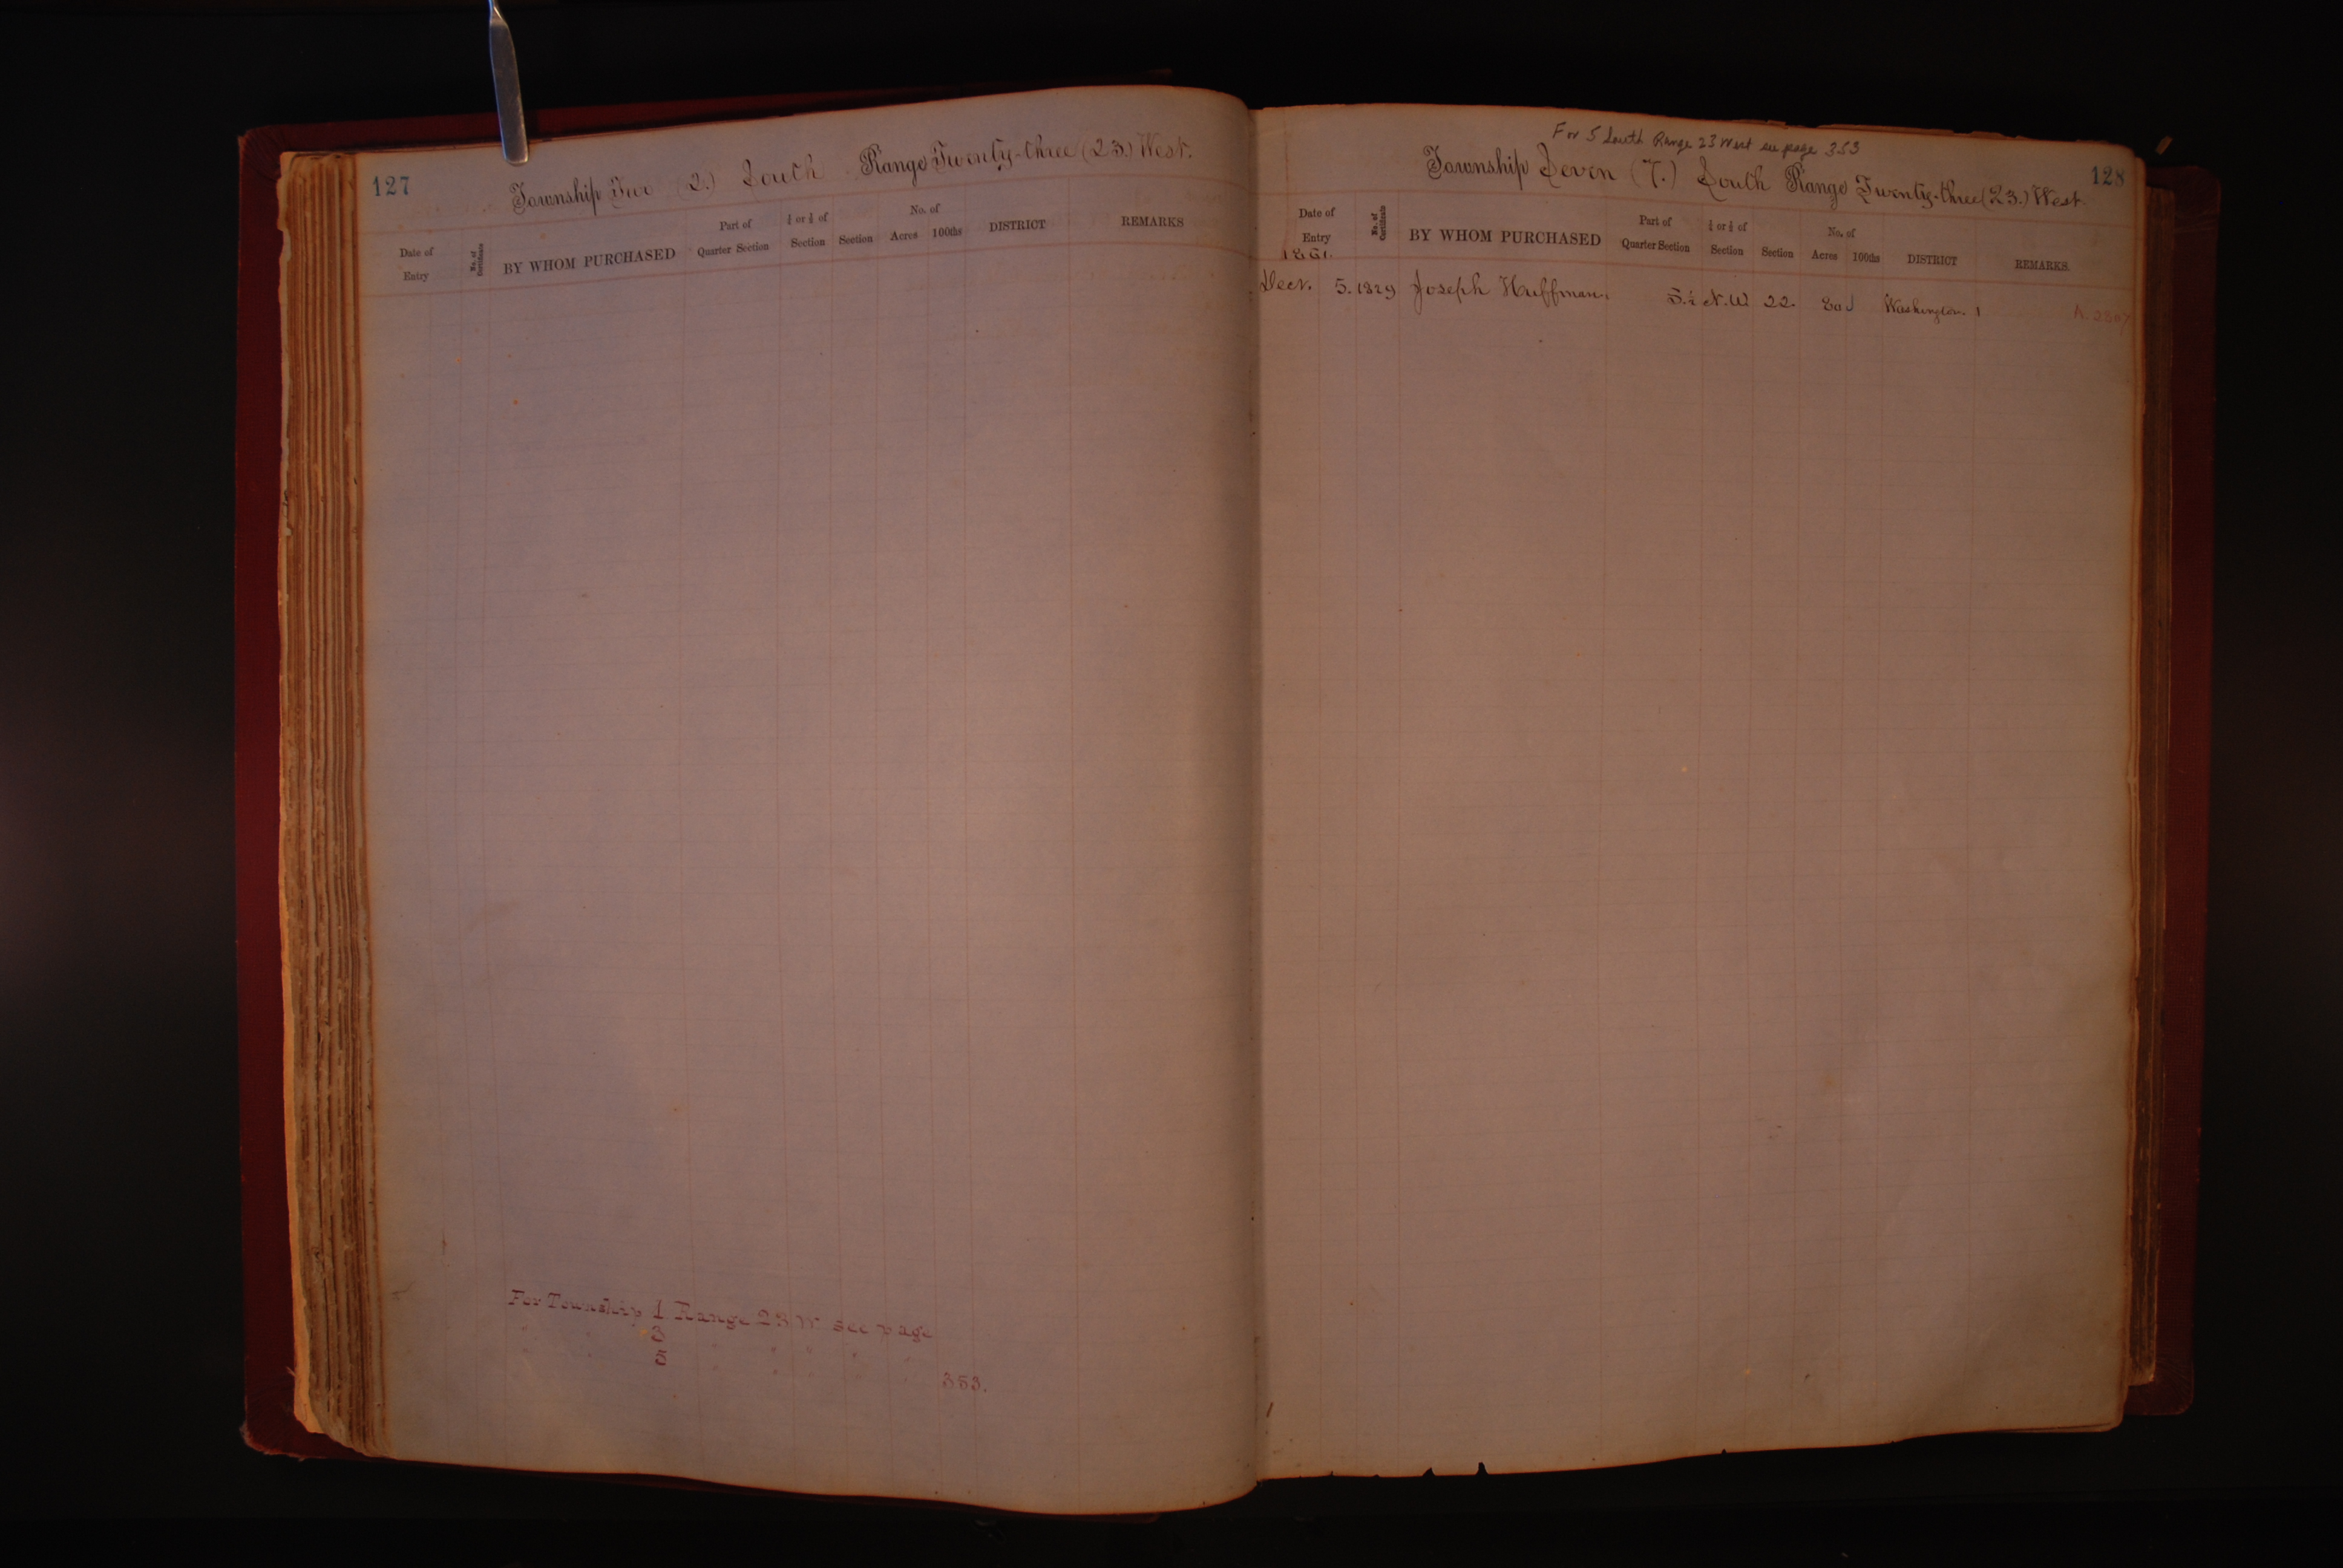 127
Township Two (2.) South Range Twenty-three (23.) West.
Date of Entry
No. of Certificate
BY WHOM PURCHASED
Part of Quarter Section
½ or ¼ of Section
Section
No. of Acres 100ths
DISTRICT
REMARKS
For Township 1 Range 23 W see page
" " 3 " " " " "
" " 5 " " " " " 353.
For 5 South Range 23 West see page 353
128
Township Seven (7.) South Range Twenty-three (23.) West.
Date of Entry
No. of Certificate
BY WHOM PURCHASED
Part of Quarter Section
½ or ¼ of Section
Section
No. of Acres 100ths
DISTRICT
REMARKS.
1861.
Dect. 5. 1829 Joseph Huffman. S.½ N.W 22. 80 Washington 1